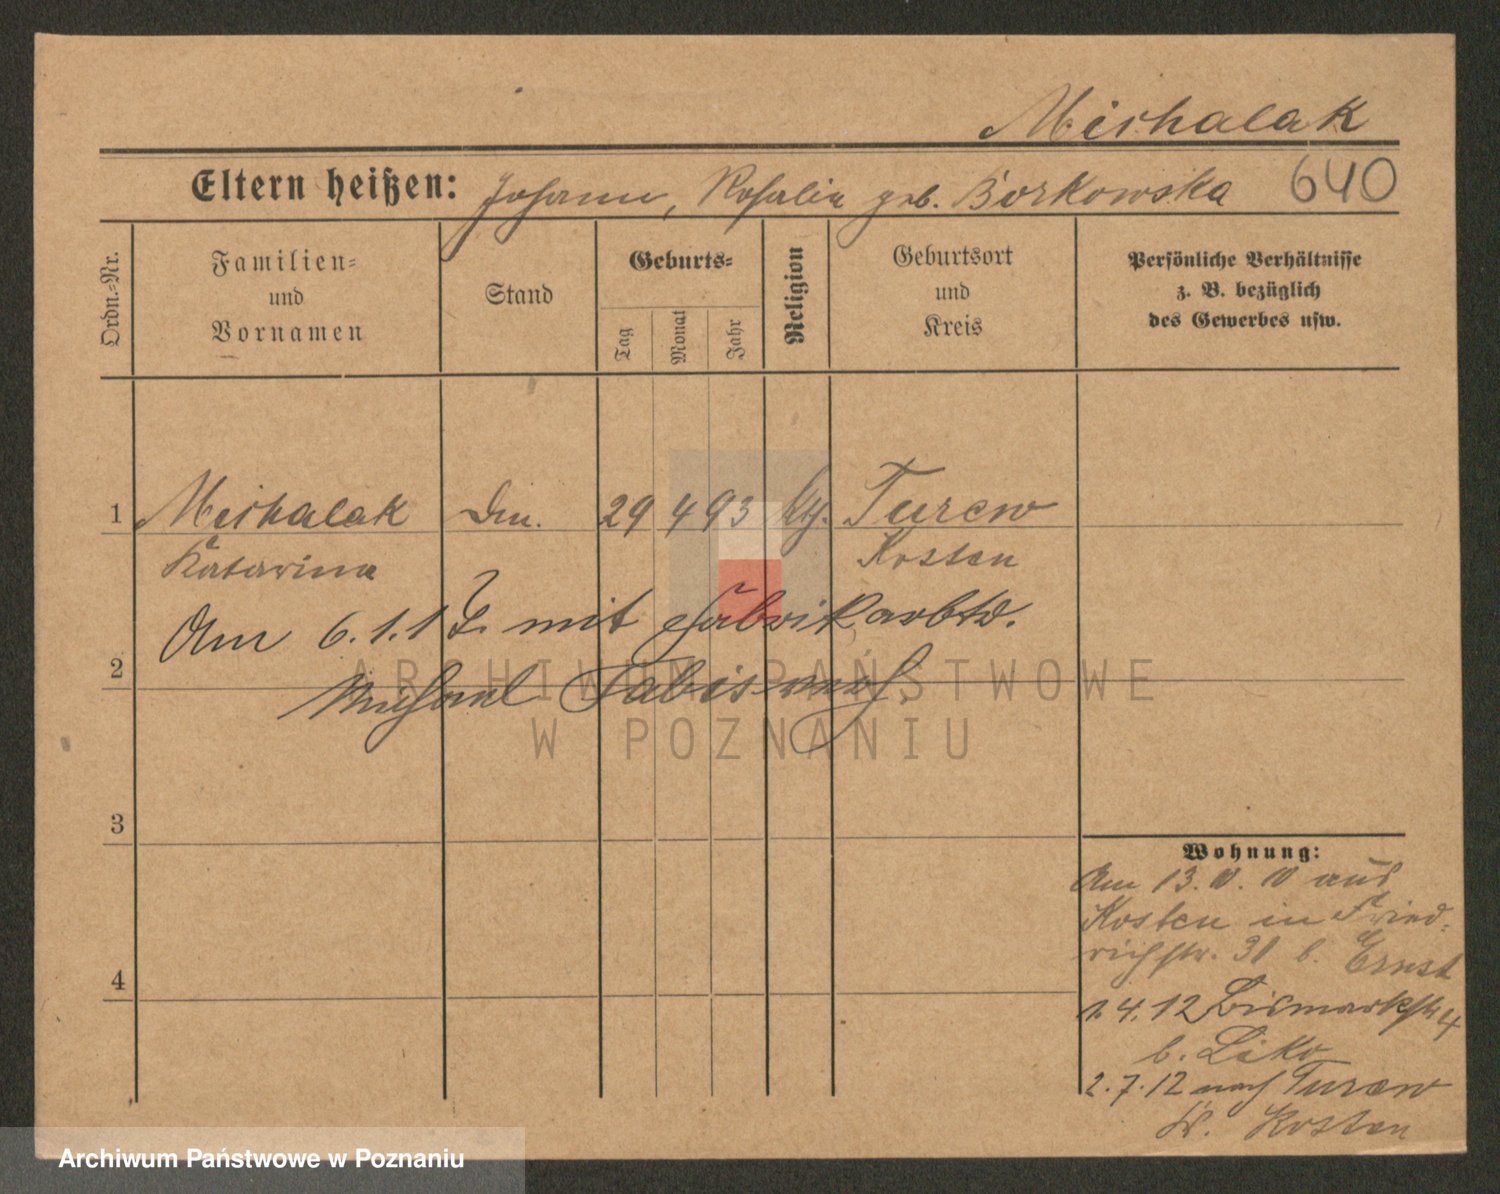 Michalak
Eltern heißen: Johann, Rosalie geb. Borkowska 640
Ordn.=Nr.
Familien=
und
Vornamen
Stand
Geburts=
Tag
Monat
Jahr
Religion
Geburtsort
und
Kreis
Persönliche Verhältnisse
z. B. bezüglich
des Gewerbes usw.
1 Michalak 29 4 93 Turew
Katarina Kosten
Am 6.1. mit Fabrikarbtr.
2
Michael Tabis verh.
3
Wohnung:
Am 13. aus
Kosten in Fried=
richstr. 31 b. Ernst
4
1.4.12 Bismarckstr 4
b. Liko
2.7.12 nach Turew
Kr. Kosten
ARCHIWUM PAŃSTWOWE
W POZNANIU
Archiwum Państwowe w Poznaniu